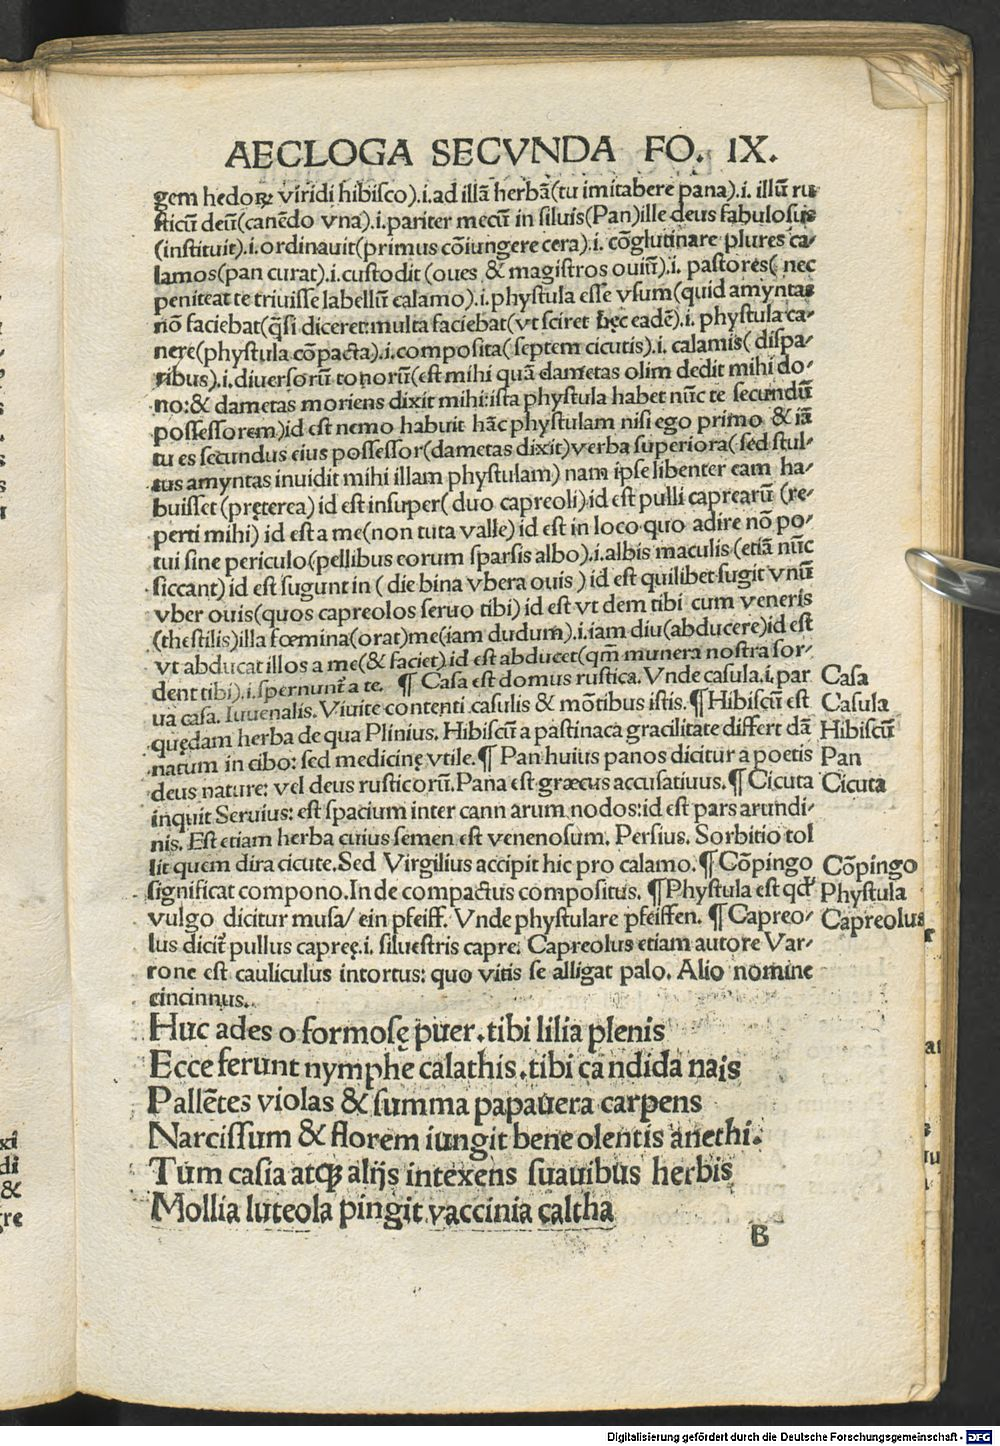 AECLOGA SECVNDA FO. IX.
gem hedoꝝ viridi hibisco).i.ad illā herbā(tu imitabere pana).i. illū ru⸗
sticū deū(canēdo vna).i.pariter mecū in siluis(Pan)ille deus fabulosus
(instituit).i.ordinauit(primus cōiungere cera).i. cōglutinare plures ca⸗
lamos(pan curat).i.custodit (oues & magistros ouiū).i. pastores( nec
peniteat te triuisse labellū calamo).i.phystula esse vsum(quid amyntas
nō faciebat(q̄si diceret:multa faciebat(vt sciret hęc eadē).i. phystula ca⸗
nere(phystula cōpacta).i.composita(septem cicutis).i. calamis( dispa⸗
ribus).i.diuersorū tonorū(est mihi quā dametas olim dedit mihi do⸗
no:& dametas moriens dixit mihi:ista phystula habet nūc te secundū
possessorem)id est nemo habuit hāc phystulam nisi ego primo & iā
tu es secundus eius possessor(dametas dixit)verba superiora(sed stul⸗
tus amyntas inuidit mihi illam phystulam) nam ipse libenter eam ha⸗
buisset(pręterea) id est insuper( duo capreoli)id est pulli caprearū (re⸗
perti mihi) id est a me(non tuta valle) id est in loco quo adire nō po⸗
tui sine periculo(pellibus eorum sparsis albo).i.albis maculis(etiā nūc
siccant) id est sugunt in ( die bina vbera ouis ) id est quilibet sugit vnū
vber ouis(quos capreolos seruo tibi) id est vt dem tibi cum veneris
(thestilis)illa fœmina(orat)me(iam dudum).i.iam diu(abducere)id est
vt abducat illos a me(& faciet) id est abducet(qm̄ munera nostra sor⸗
dent tibi).i.spernunt̄ a te. ¶ Casa est domus rustica. Vnde casula.i.par Casa
ua casa. Iuuenalis. Viuite contenti casulis & mōtibus istis. ¶ Hibiscū est Casula
quędam herba de qua Plinius. Hibiscū a pastinaca gracilitate differt dā Hibiscū
natum in cibo: sed medicinę vtile. ¶ Pan huius panos dicitur a poetis Pan
deus nature: vel deus rusticorū. Pana est græcus accusatiuus. ¶ Cicuta Cicuta
inquit Seruius: est spacium inter cann arum nodos:id est pars arundi⸗
nis. Est etiam herba cuius semen est venenosum. Persius. Sorbitio tol
lit quem dira cicute. Sed Virgilius accipit hic pro calamo. ¶ Cōpingo Cōpingo
significat compono. Inde compactus compositus. ¶ Phystula est qd' Phystula
vulgo dicitur musa/ ein pfeiff. Vnde phystulare pfeiffen. ¶ Capreo⸗ Capreolus
lus dicit̄ pullus capreę.i. siluestris capre. Capreolus etiam autore Var⸗
rone est cauliculus intortus: quo vitis se alligat palo. Alio nomine
cincinnus.
Huc ades o formosę puer.tibi lilia plenis
Ecce ferunt nymphe calathis.tibi candida nais
Pallētes violas & summa papauera carpens
Narcissum & florem iungit bene olentis anethi.
Tum casia atqꝫ alijs intexens suauibus herbis
Mollia luteola pingit vaccinia caltha
B
Digitalisierung gefördert durch die Deutsche Forschungsgemeinschaft - DFG